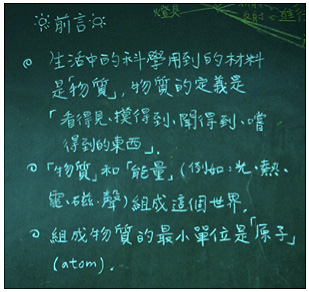 ※前言※
生活中的科學用到的材料
是「物質」，物質的定義是
「看得見、摸得到、聞得到、嚐
得到的東西」．
「物質」和「能量」(例如：光、熱、
電、磁、聲)組成這個世界．
組成物質的最小單位是「原子」
(atom)．